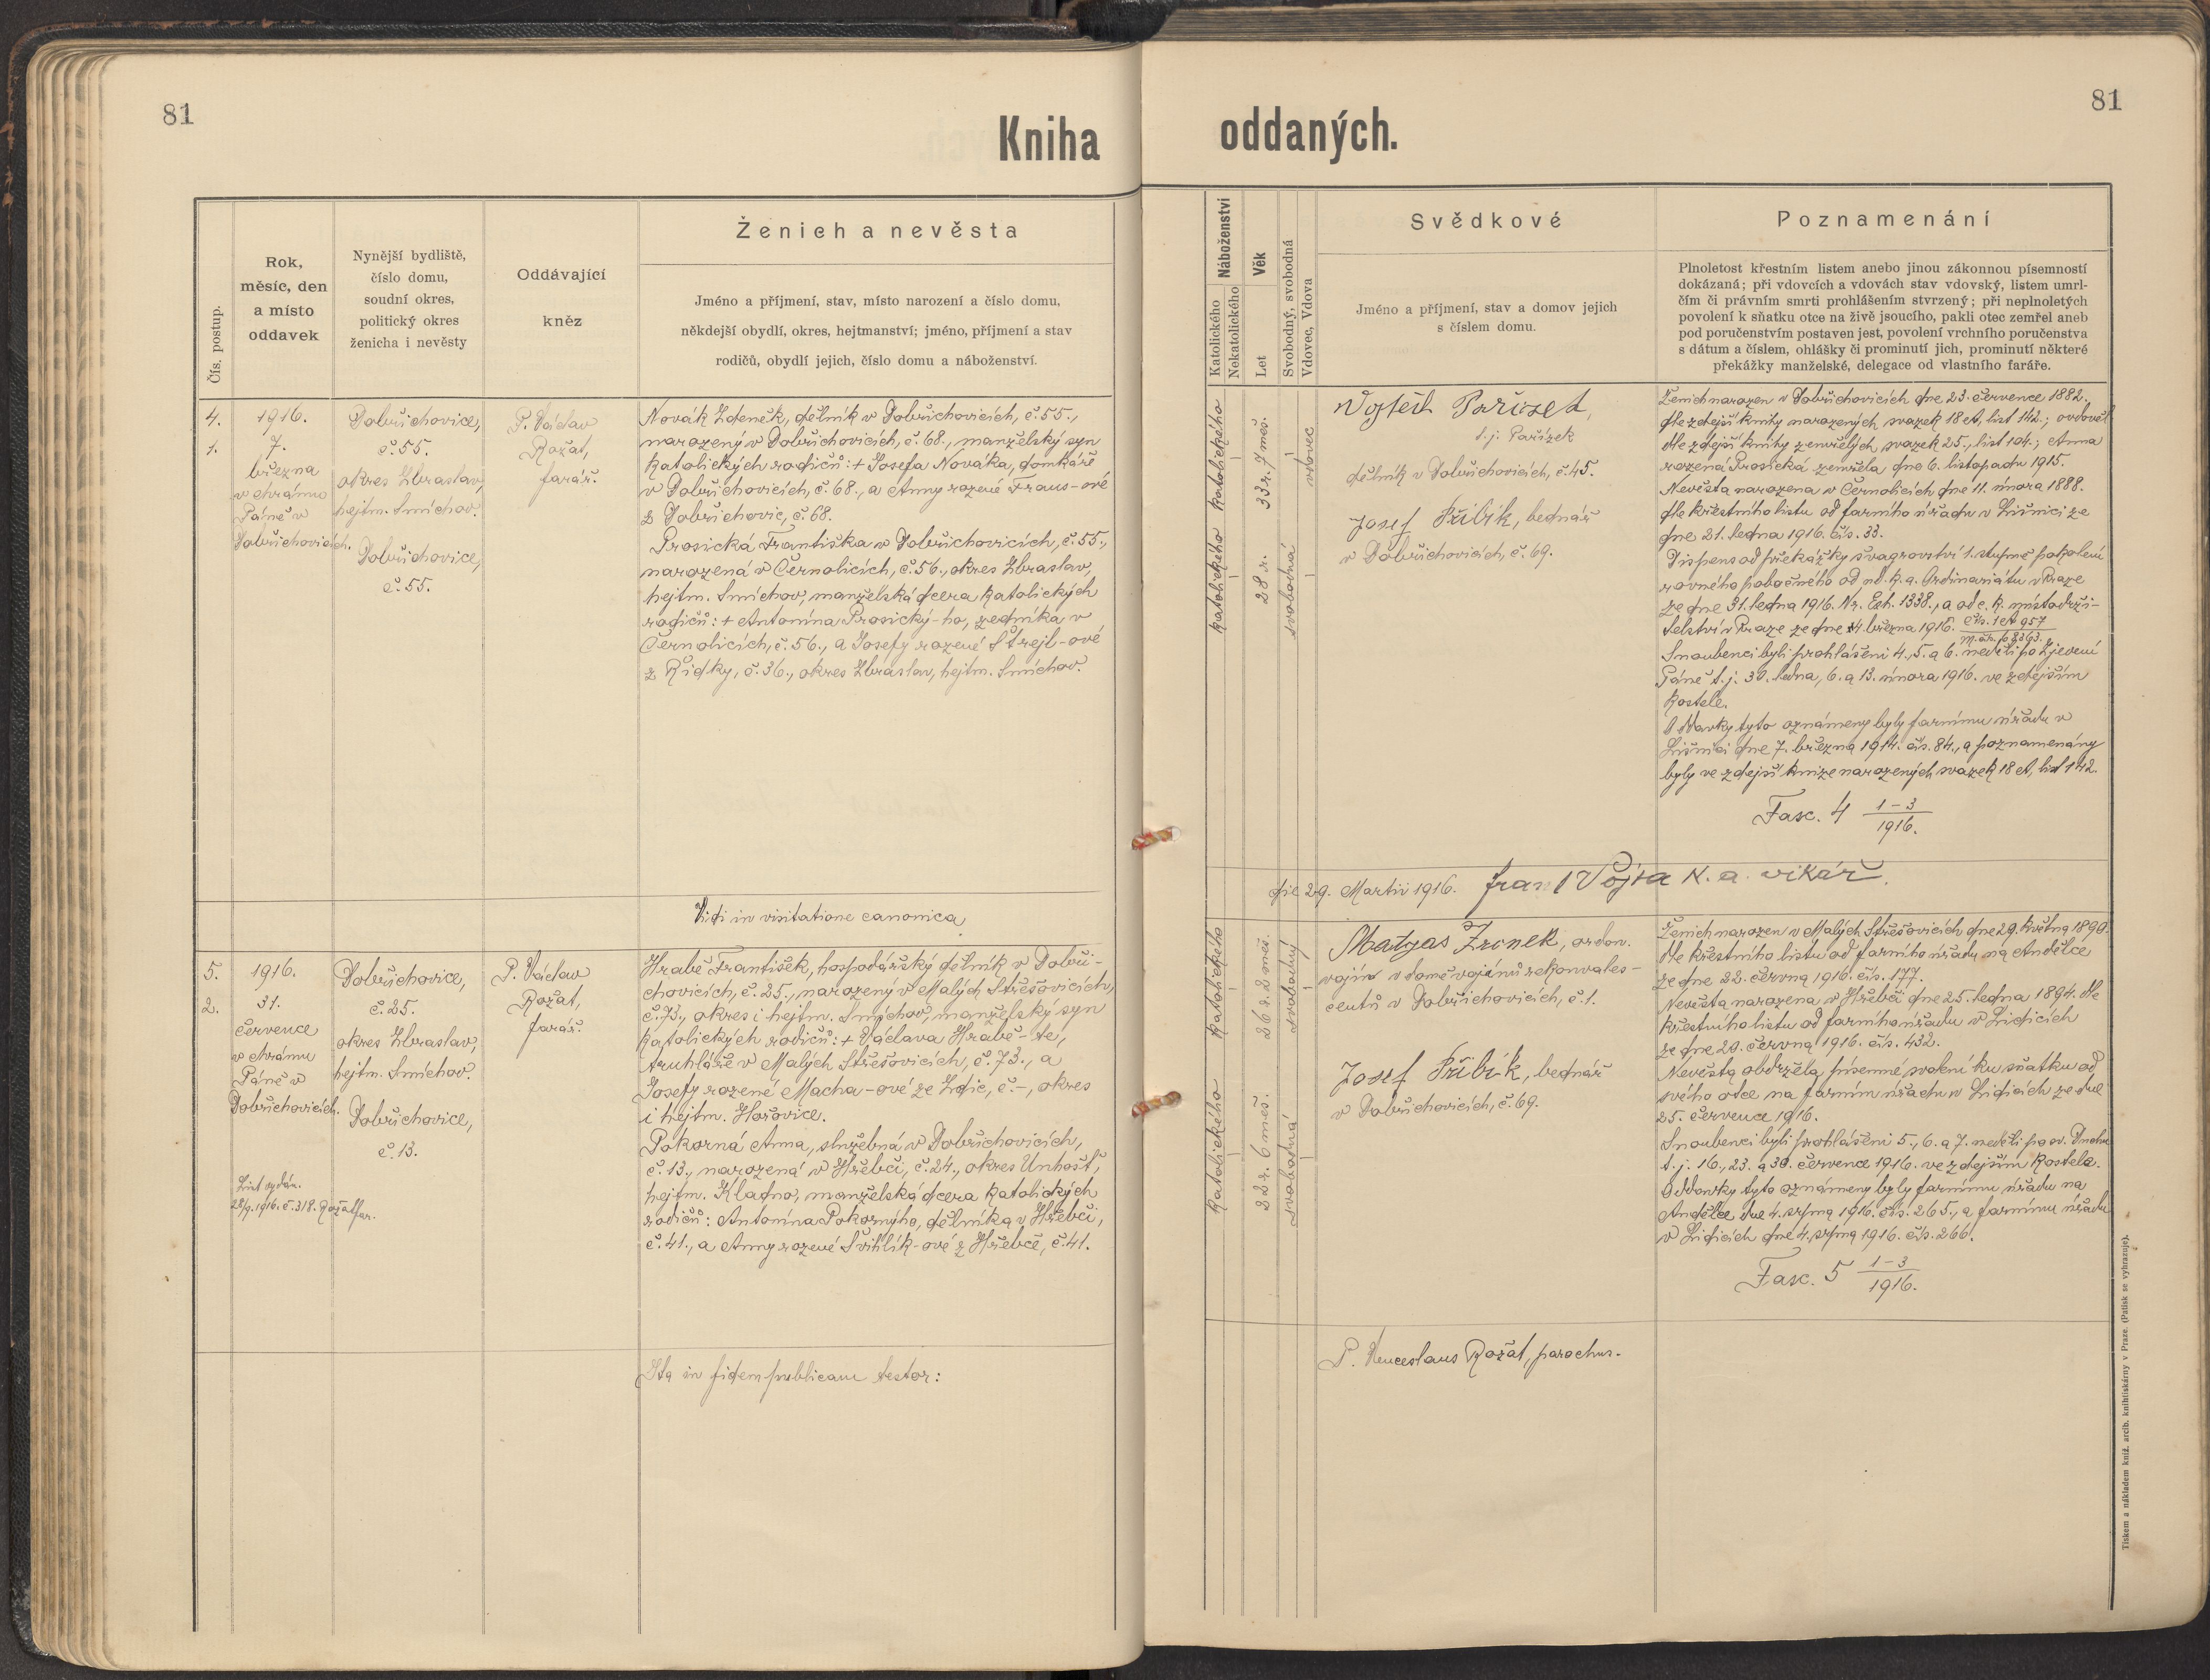 81
81
Kniha oddaných.
Čís. postup.
Rok,
měsíc, den
a místo
oddavek
Nynější bydliště,
číslo domu,
soudní okres,
politický okres
ženicha i nevěsty
Oddávající
kněz
Ženich a nevěsta
Jméno a příjmení, stav, místo narození a číslo domu,
někdejší obydlí, okres, hejtmanství; jméno, příjmení a stav
rodičů, obydlí jejich, číslo domu a náboženství.
Náboženství
Katolického
Nekatolického
Věk
Let
Svobodný, svobodná
Vdovec, Vdova
Svědkové
Jméno a příjmení, stav a domov jejich
s číslem domu.
Poznamenání
Plnoletost křestním listem anebo jinou zákonnou písemností
dokázaná; při vdovcích a vdovách stav vdovský, listem umrl-
čím či právním smrti prohlášením stvrzený; při neplnoletých
povolení k sňatku otce na živě jsoucího, pakli otec zemřel aneb
pod poručenstvím postaven jest, povolení vrchního poručenstva
s dátum a číslem, ohlášky či prominutí jich, prominutí některé
překážky manželské, delegace od vlastního faráře.
4.
1.
1916.
7.
března
v chrámu
Páně v
Dobřichovicích.
Dobřichovice,
č. 55.
okres Zbraslav,
hejtm. Smíchov.
Dobřichovice,
č. 55.
P. Václav
Rožát,
farář.
Novák Zdeněk, dělník v Dobřichovicích, č. 55.,
narozený v Dobřichovicích, č. 68., manželský syn
katolických rodičů: + Josefa Nováka, domkáře
v Dobřichovicích, č. 68., a Anny rozené Fraus-ové
z Dobřichovic, č. 68.
Prosická Františka v Dobřichovicích, č. 55.,
narozená v Černolicích, č. 56., okres Zbraslav,
hejtm. Smíchov, manželská dcera katolických
rodičů: + Antonína Prosický-ho, zedníka v
Černolicích, č. 56., a Josefy rozené Štrejl-ové
z Řidky, č. 36., okres Zbraslav, hejtm. Smíchov.
katolického
katolického
33 r. 7 měs.
28 r.
vdovec
svobodná
Vojtěch Pařízek,
t. j. Pařízek
dělník v Dobřichovicích, č. 45.
Josef Přibík, bednář
v Dobřichovicích, č. 69.
Ženich narozen v Dobřichovicích dne 23. července 1882.
dle zdejší knihy narozených, svazek 18 A, list 142.; ovdověl
dle zdejší knihy zemřelých, svazek 25., list 104.; Anna
rozená Prosická zemřela dne 6. listopadu 1915.
Nevěsta narozena v Černolicích dne 11. února 1888.
dle křestního listu od farního úřadu v Líšnici ze
dne 21. ledna 1916. čís. 33.
Dispens od překážky švagrovství 1. stupně pokolení
rovného pobočného od nd. k. a. Ordinariátu v Praze
ze dne 31. ledna 1916. Nr. Exh. 1338., a od c. k. místodrži-
telství v Praze ze dne 4. března 1916.
Snoubenci byli prohlášeni 4., 5. a 6. neděli po Zjevení
Páně t. j. 30. ledna, 6. a 13. února 1916. ve zdejším
kostele.
Oddavky tyto oznámeny byly farnímu úřadu v
Líšnici dne 7. března 1914. čís. 84., a poznamenány
byly ve zdejší knize narozených svazek 18 A, list 142.
Fasc. 4 1-3/1916.
Vidi in visitatione canonica die 29. Martii 1916. Frant Vojta k. a. vikář.
5.
2.
1916.
31.
července
v chrámu
Páně v
Dobřichovicích.
List vydán.
28/9. 1916. č. 318. Rožát far.
Dobřichovice,
č. 25.
okres Zbraslav,
hejtm. Smíchov.
Dobřichovice,
č. 13.
P. Václav
Rožát,
farář.
Hrabě František, hospodářský dělník v Dobři-
chovicích, č. 25., narozený v Malých Střešovicích,
č. 73., okres i hejtm. Smíchov, manželský syn
katolických rodičů: + Václava Hrabě-te,
truhláře v Malých Střešovicích, č. 73., a
Josefy rozené Macha-ové ze Zdic, č. -, okres
i hejtm. Hořovice.
Pokorná Anna, služebná v Dobřichovicích,
č. 13., narozená v Hřebči, č. 24., okres Unhošť,
hejtm. Kladno, manželská dcera katolických
rodičů: Antonína Pokorného, dělníka v Hřebči,
č. 41., a Anny rozené Švihlík-ové z Hřebče, č. 41.
katolického
katolického
26 r. 2 měs.
22 r. 6 měs.
svobodný
svobodná
Matyas Zronek, ordon.
vojín v domě vojínů rekonvales-
centů v Dobřichovicích, č. 1.
Josef Přibík, bednář
v Dobřichovicích, č. 69.
Ženich narozen v Malých Střešovicích dne 29. května 1890.
dle křestního listu od farního úřadu na Andělce
ze dne 22. června 1916. čís. 177.
Nevěsta narozena v Hřebči dne 25. ledna 1894. dle
křestního listu od farního úřadu v Lidicích
ze dne 20. června 1916. čís. 432.
Nevěsta obdržela písemné svolení ku sňatku od
svého otce na farním úřadu v Lidicích ze dne
25. července 1916.
Snoubenci byli prohlášeni 5., 6. a 7. neděli po sv. Duchu
t. j. 16., 23. a 30. července 1916. ve zdejším kostele.
Oddavky tyto oznámeny byly farnímu úřadu na
Andělce dne 4. srpna 1916. čís. 265., a farnímu úřadu
v Lidicích dne 4. srpna 1916. čís. 266.
Fasc. 5 1-3/1916.
Ita in fidem publicam testor: P. Venceslaus Rožát, parochus.
Tiskem a nákladem kníž. arcib. knihtiskárny v Praze. (Patisk se vyhrazuje).